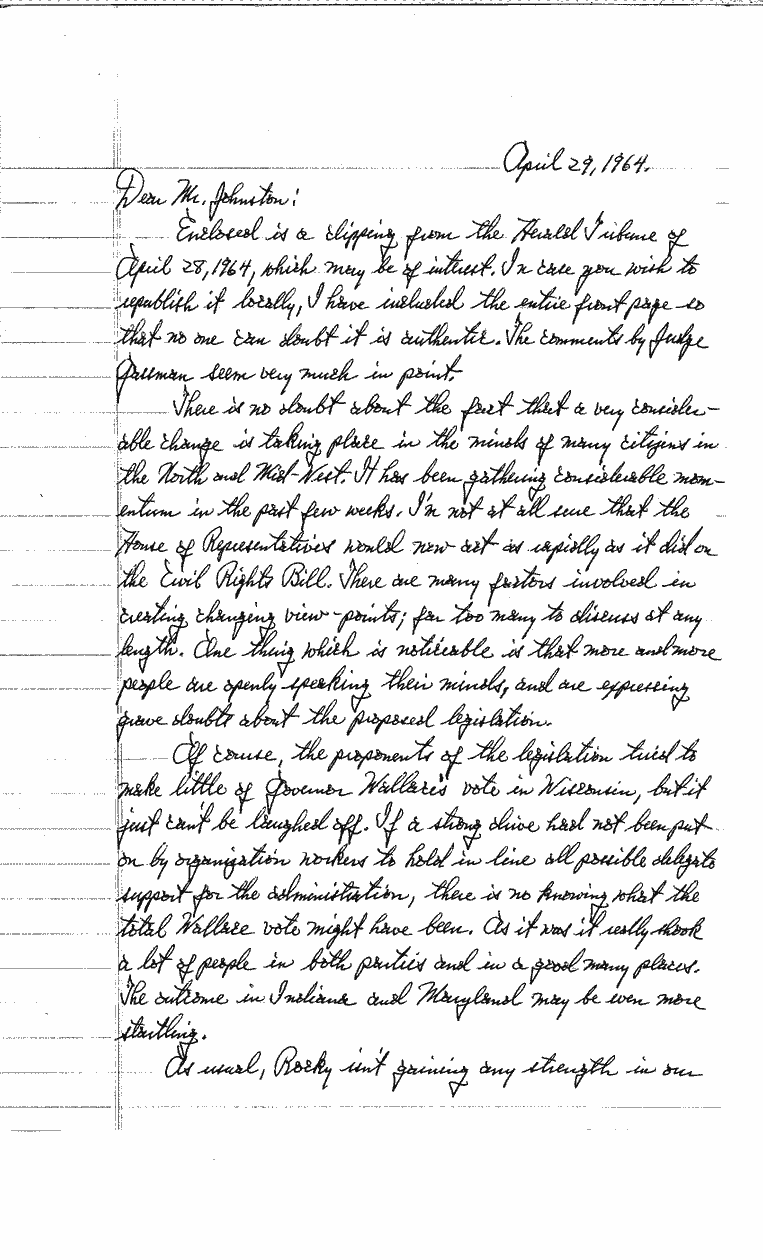 April 29, 1964.
Dear Mr. Johnston:
Enclosed is a clipping from the Herald Tribune of
April 28, 1964, which may be of interest. In case you wish to
republish it locally, I have included the entire front page so
that no one can doubt it is authentic. The comments by Judge
Gassman seem very much in point.
There is no doubt about the fact that a very consider-
able change is taking place in the minds of many citizens in
the North and Mid-West. It has been gathering considerable mom-
entum in the past few weeks. I'm not at all sure that the
House of Representatives would now act as rapidly as it did on
the Civil Rights Bill. There are many factors involved in
creating changing view-points; far too many to discuss at any
length. One thing which is noticeable is that more and more
people are openly speaking their minds, and are expressing
grave doubts about the proposed legislation.
Of course, the proponents of the legislation tried to
make little of Governor Wallace's vote in Wisconsin, but it
just can't be laughed off. If a strong drive had not been put
on by organization workers to hold in line all possible delegate
support for the administration, there is no knowing what the
total Wallace vote might have been. As it was it really shook
a lot of people in both parties and in a good many places.
The outcome in Indiana and Maryland may be even more
startling.
As usual, Rocky isn't gaining any strength in our